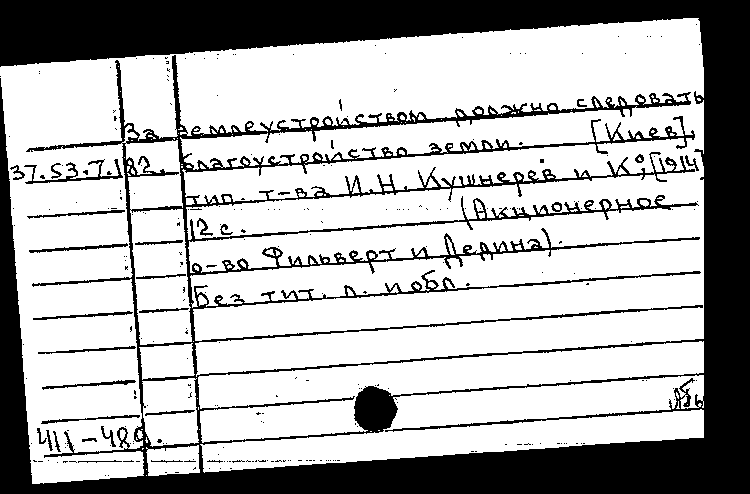 За землеустройством должно следовать
37.53.7.182. благоустройство земли. [Киев],
тип. т-ва И.Н. Кушнерев и К°, [1914]
12 с. (Акционерное
о-во Фильверт и Дедина).
Без тит. л. и обл.
411-489.